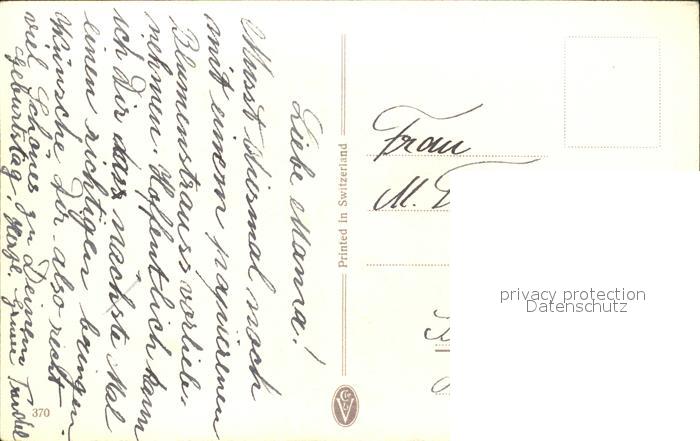 Liebe Mama!
Musst diesmal noch
mit einem papierenen
Blumenstrauss vorlieb-
nehmen. Hoffentlich kann
ich Dir das nächste Mal
einen richtigen bringen.
Wünsche Dir also recht
viel Schönes zu Deinem
Geburtstag, Herzl. Grüsse Trudel
Printed in Switzerland
370
Frau
M.
privacy protection
Datenschutz